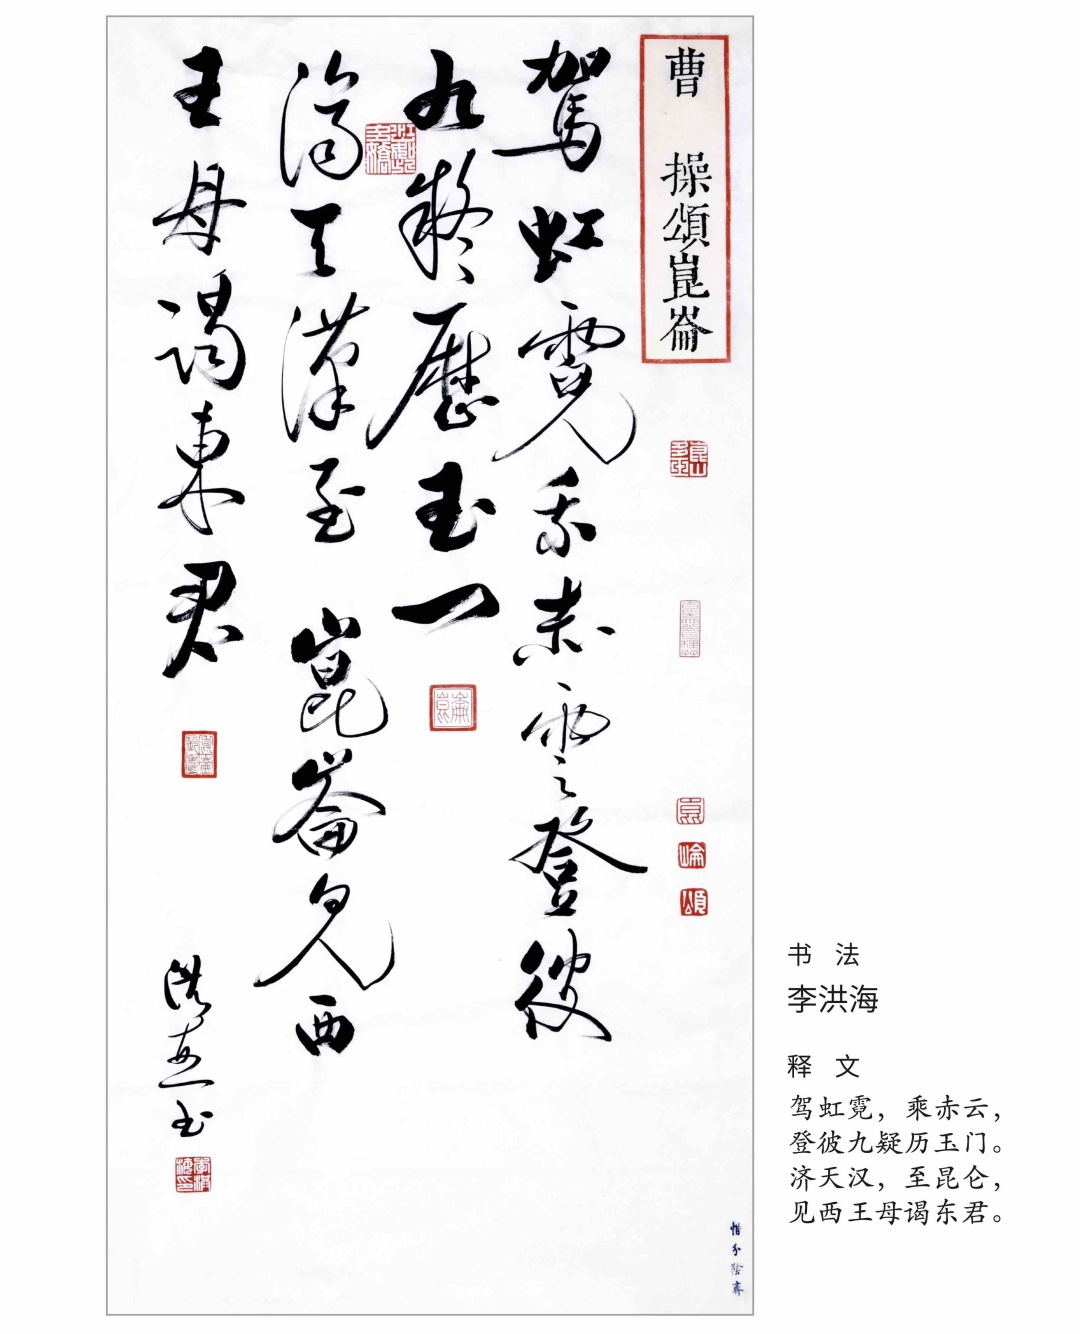 曹操頌崑崙
駕虹霓乘赤雲登彼
九疑歷玉一
濟天漢至崑崙見西
王母謁東君
洪海书
惜分陰齋
书 法
李洪海
释 文
驾虹霓，乘赤云，
登彼九疑历玉门。
济天汉，至昆仑，
见西王母谒东君。